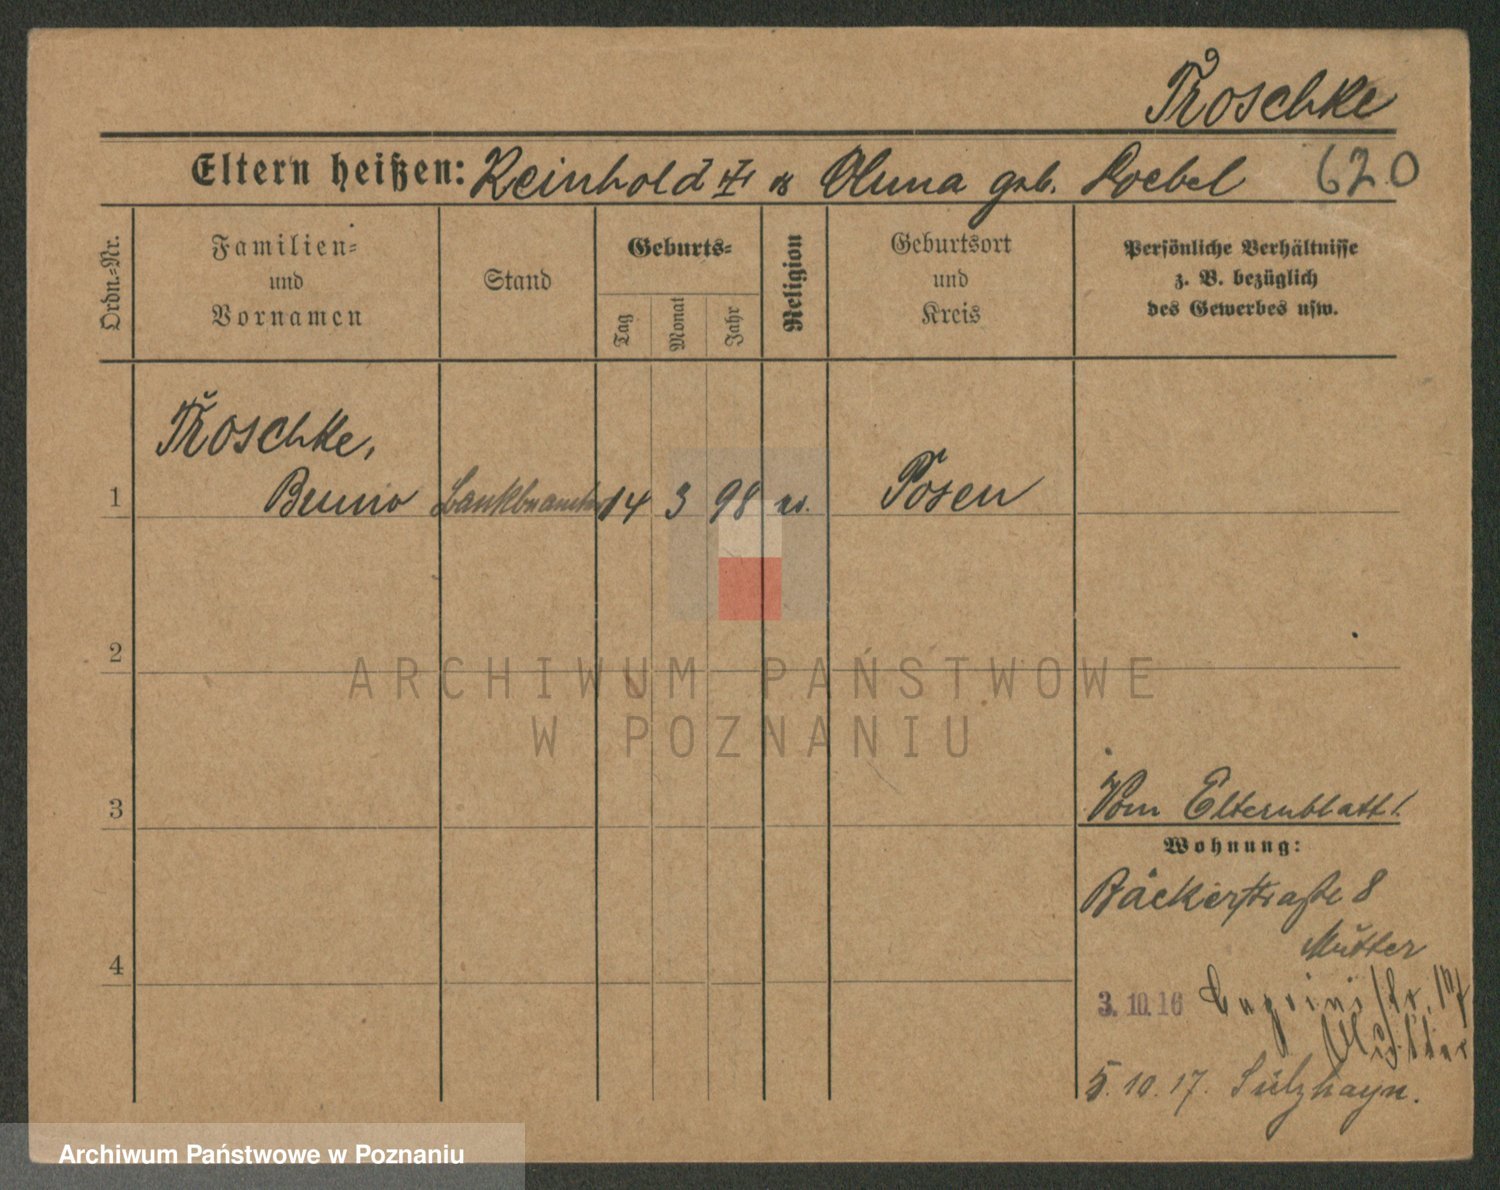 Troschke
Eltern heißen: Reinhold geb. Loebel 620
Ordn.=Nr.
Familien=
und
Vornamen
Stand
Geburts=
Tag
Monat
Jahr
Religion
Geburtsort
und
Kreis
Persönliche Verhältnisse
z. B. bezüglich
des Gewerbes usw.
Troschke,
1 Bruno Bankbeamter 14 3 98 Posen
2
ARCHIWUM PAŃSTWOWE
W POZNANIU
Vom Elternblatt!
3
Wohnung:
Bäckerstraße 8
Mutter
4
3.10.16
5.10.17. Sülzhayn.
Archiwum Państwowe w Poznaniu